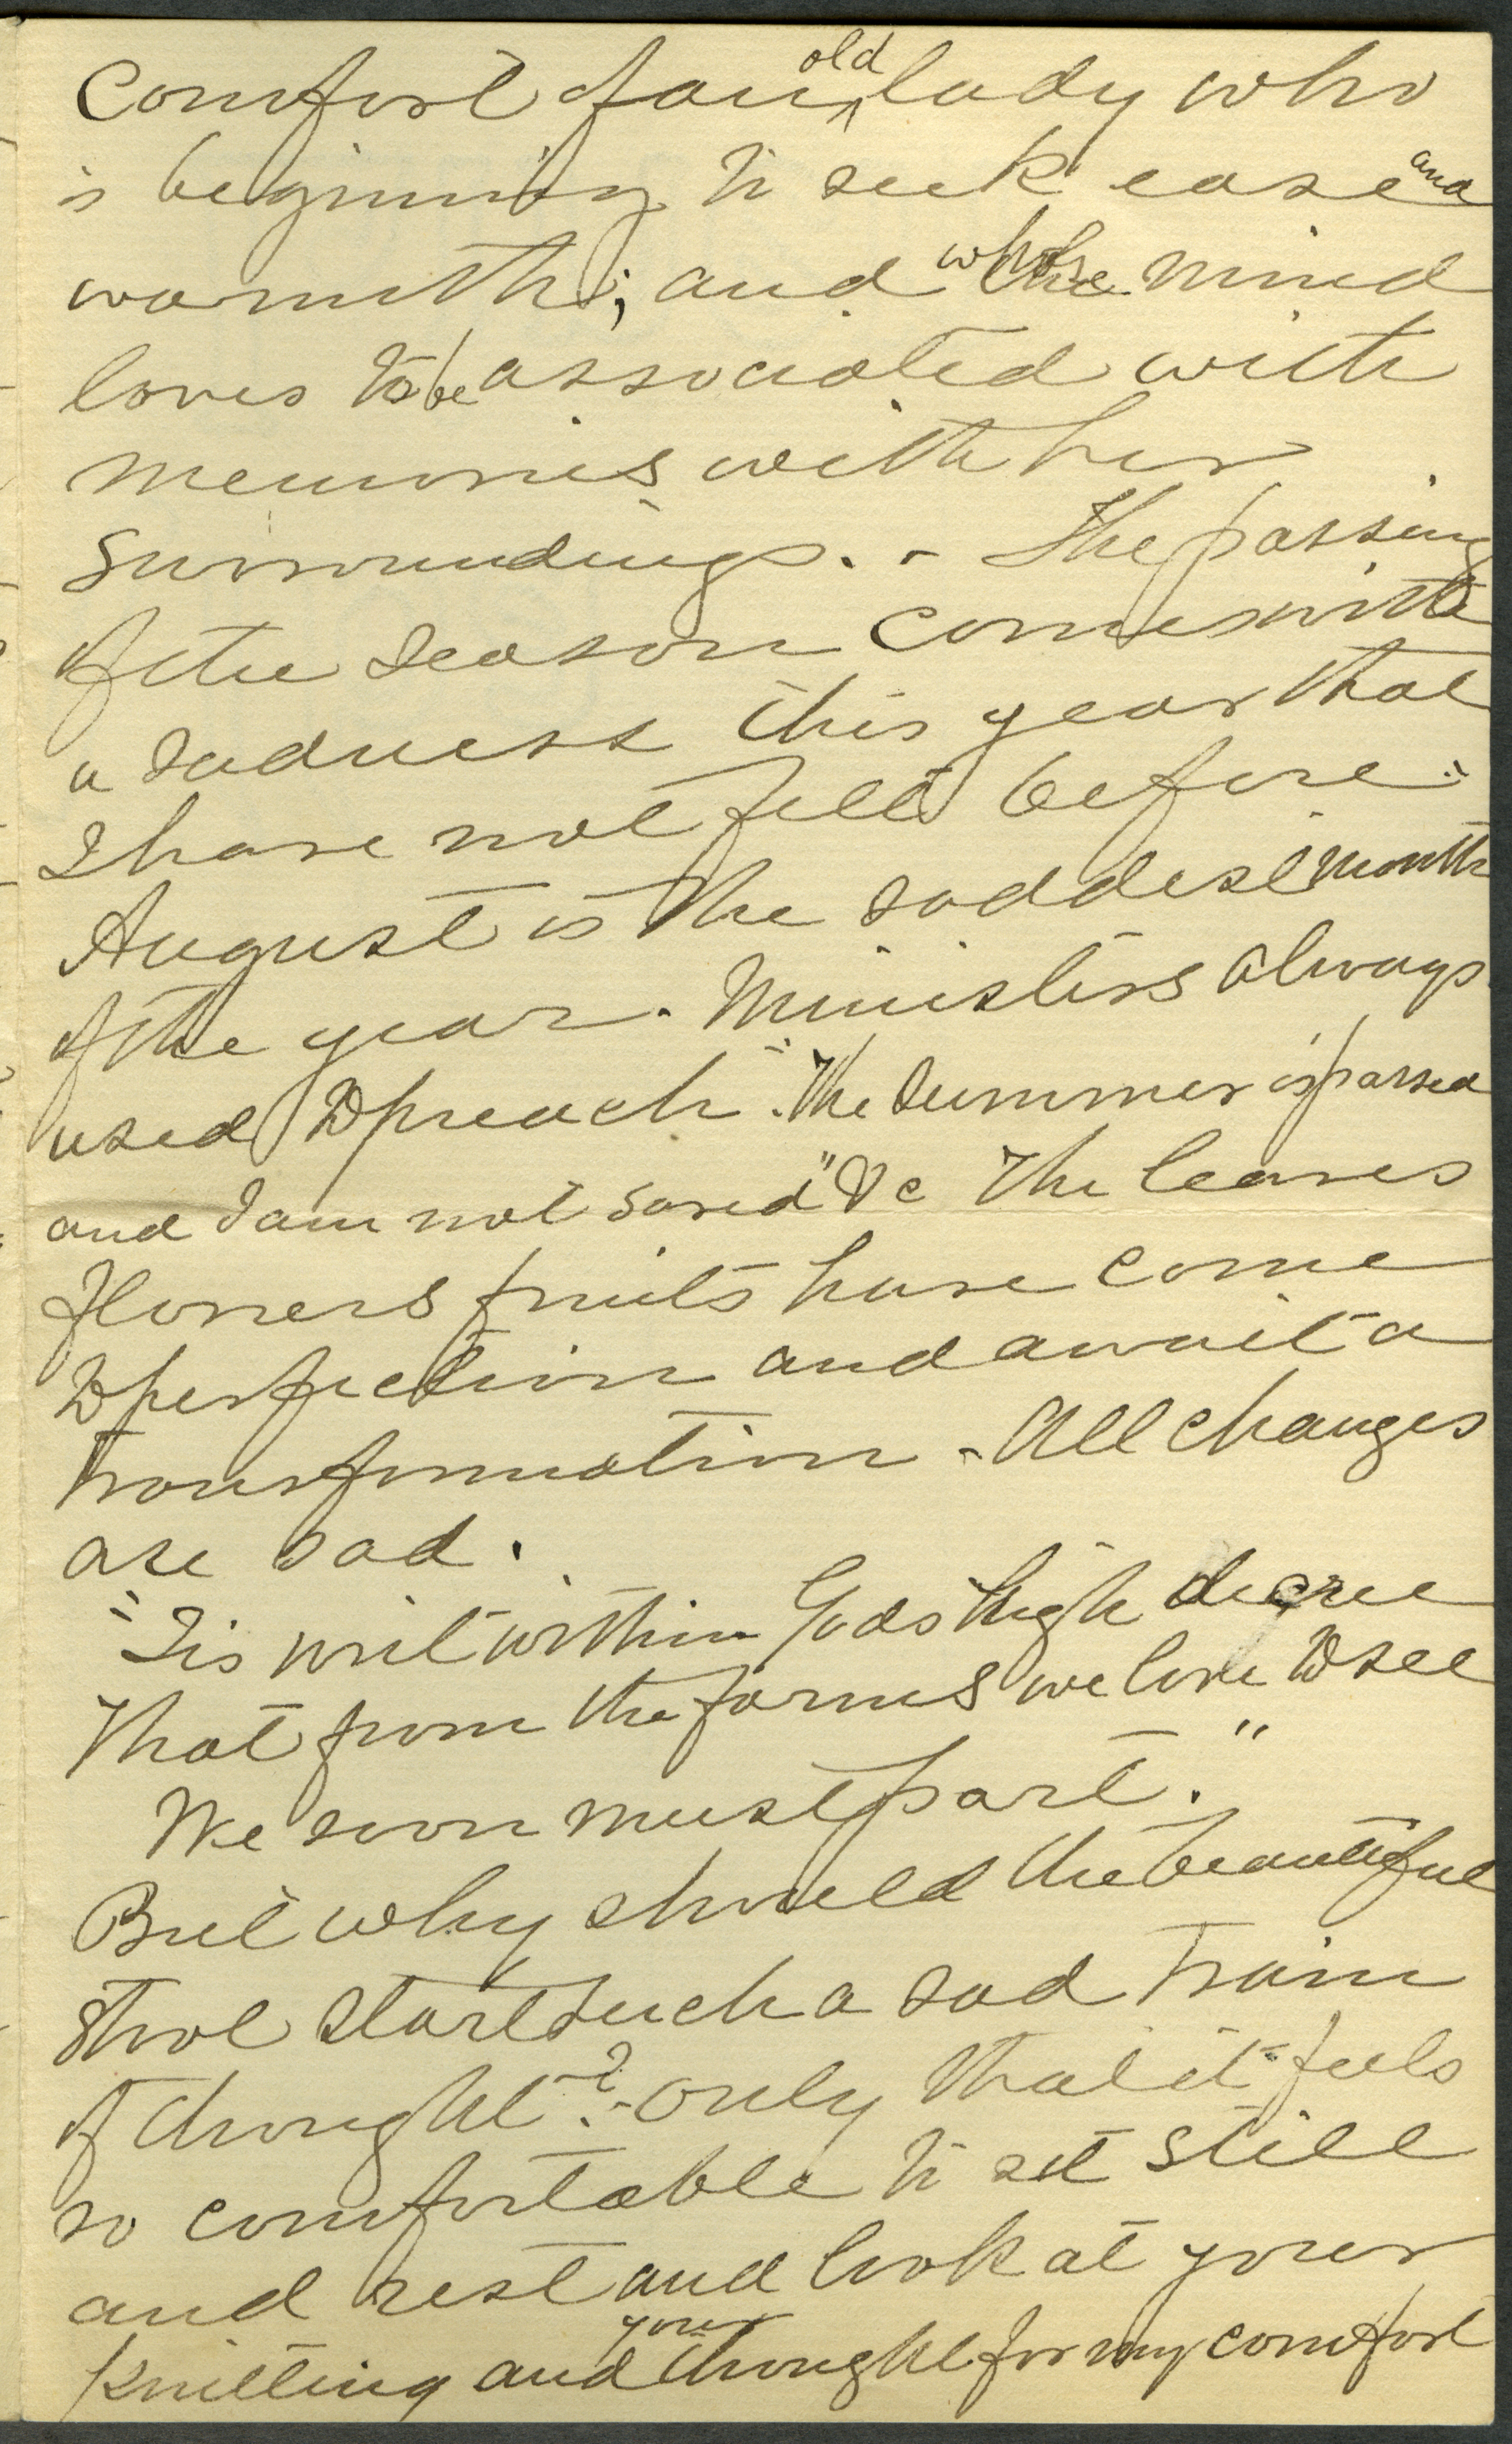 Comfort of an old lady who
is beginning to seek ease and
warmth; and whose mind
loves to be associated with
memories with her
surroundings. - The passing
of the season comes with
a sadness this year that
I have not felt before:
August is the saddest month
of the year. Ministers always
used to preach "The Summer is passed
and I am not saved" &c The leaves
flowers fruits have come
to perfection and await a
transformation - All changes
are sad.
"Tis writ within Gods high decree
That from the forms we love to see
We soon must part."
But why should the beautiful
Shool start such a sad train
of thought? - Only that it feels
so comfortable to sit still
and rest and look at your
Knitting and your thought for my comfort